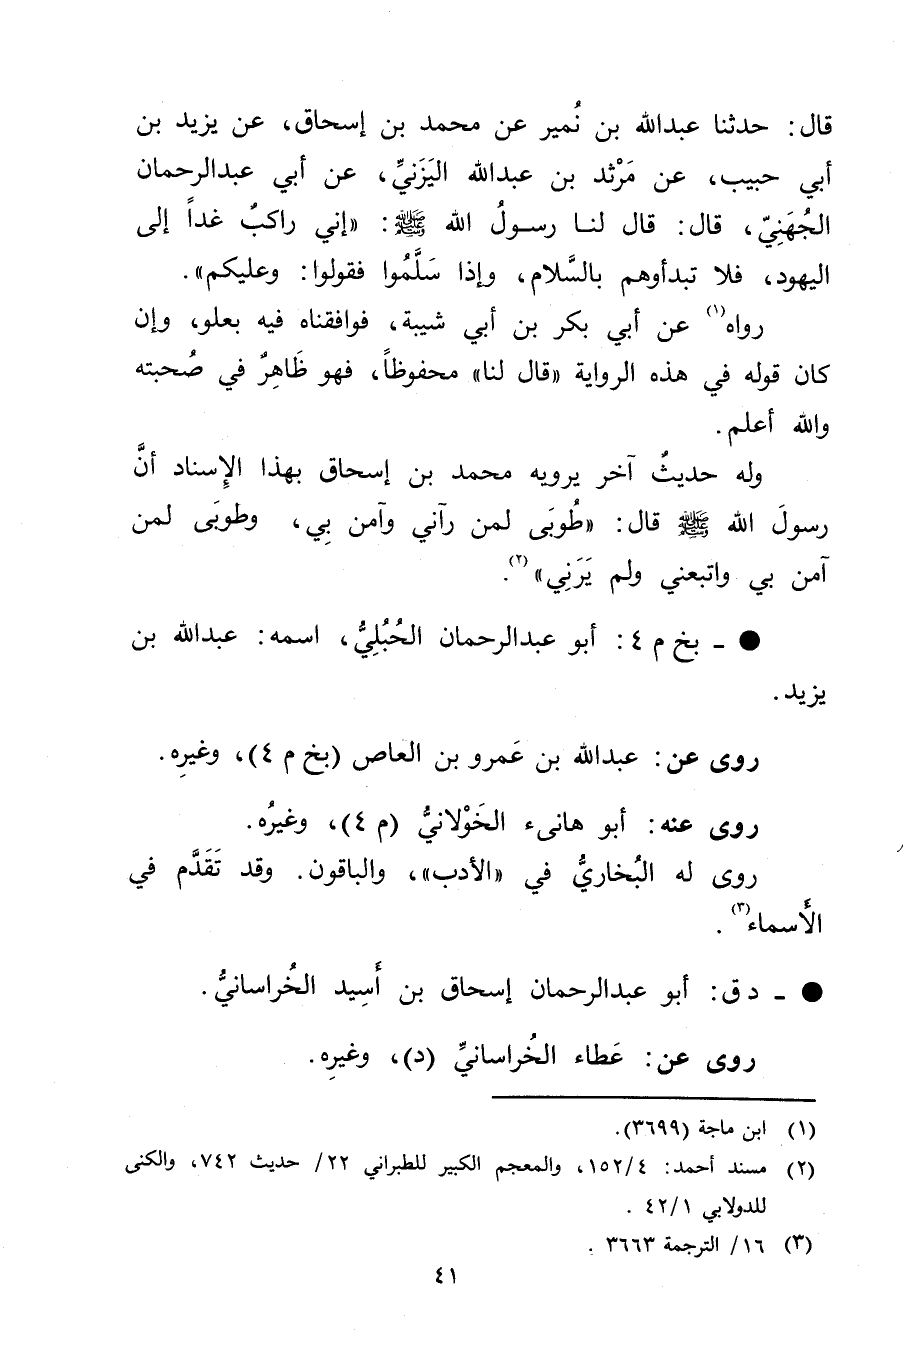 قال: حدثنا عبدالله بن نُمير عن محمد بن إسحاق، عن يزيد بن
أبي حبيب، عن مَرْثد بن عبدالله اليَزَنيِّ، عن أبي عبدالرحمان
الجُهَنِيّ، قال: قال لنا رسولُ الله ﷺ: «إني راكبٌ غداً إلى
اليهود، فلا تبدأوهم بالسَّلام، وإذا سَلَّمُوا فقولوا: وعليكم».
رواه(١) عن أبي بكر بن أبي شيبة، فوافقناه فيه بعلو، وإن
كان قوله في هذه الرواية «قال لنا» محفوظاً، فهو ظَاهِرٌ في صُحبته
والله أعلم.
وله حديثٌ آخر يرويه محمد بن إسحاق بهذا الإِسناد أنَّ
رسولَ الله ﷺ قال: «طُوبَى لمن رآني وآمن بِي، وطوبَى لمن
آمن بي واتبعني ولم يَرَنِي»(٢).
● ـ بخ م ٤: أبو عبدالرحمان الحُبُلِيُّ، اسمه: عبدالله بن
يزيد.
روى عن: عبدالله بن عَمرو بن العاص (بخ م ٤)، وغيرِه.
روى عنه: أبو هانىء الخَوْلانيُّ (م ٤)، وغيرُه.
روى له البُخاريُّ في «الأدب»، والباقون. وقد تَقَدَّم في
الأَسماء(٣).
● ـ د ق: أبو عبدالرحمان إسحاق بن أَسِيد الخُراسانيُّ.
روى عن: عَطاء الخُراسانيِّ (د)، وغيرِه.
(١) ابن ماجة (٣٦٩٩).
(٢) مسند أحمد: ١٥٢/٤، والمعجم الكبير للطبراني ٢٢/ حديث ٧٤٢، والكنى
للدولابي ٤٢/١ .
(٣) ١٦/ الترجمة ٣٦٦٣ .
٤١